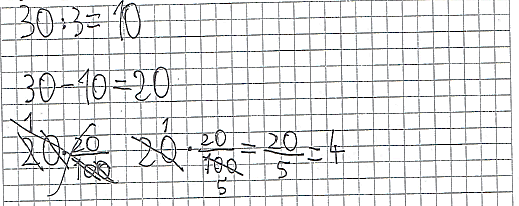 30:3=10
30-10=20
20·20/100 20·20/100=20/5=4
1 1 5